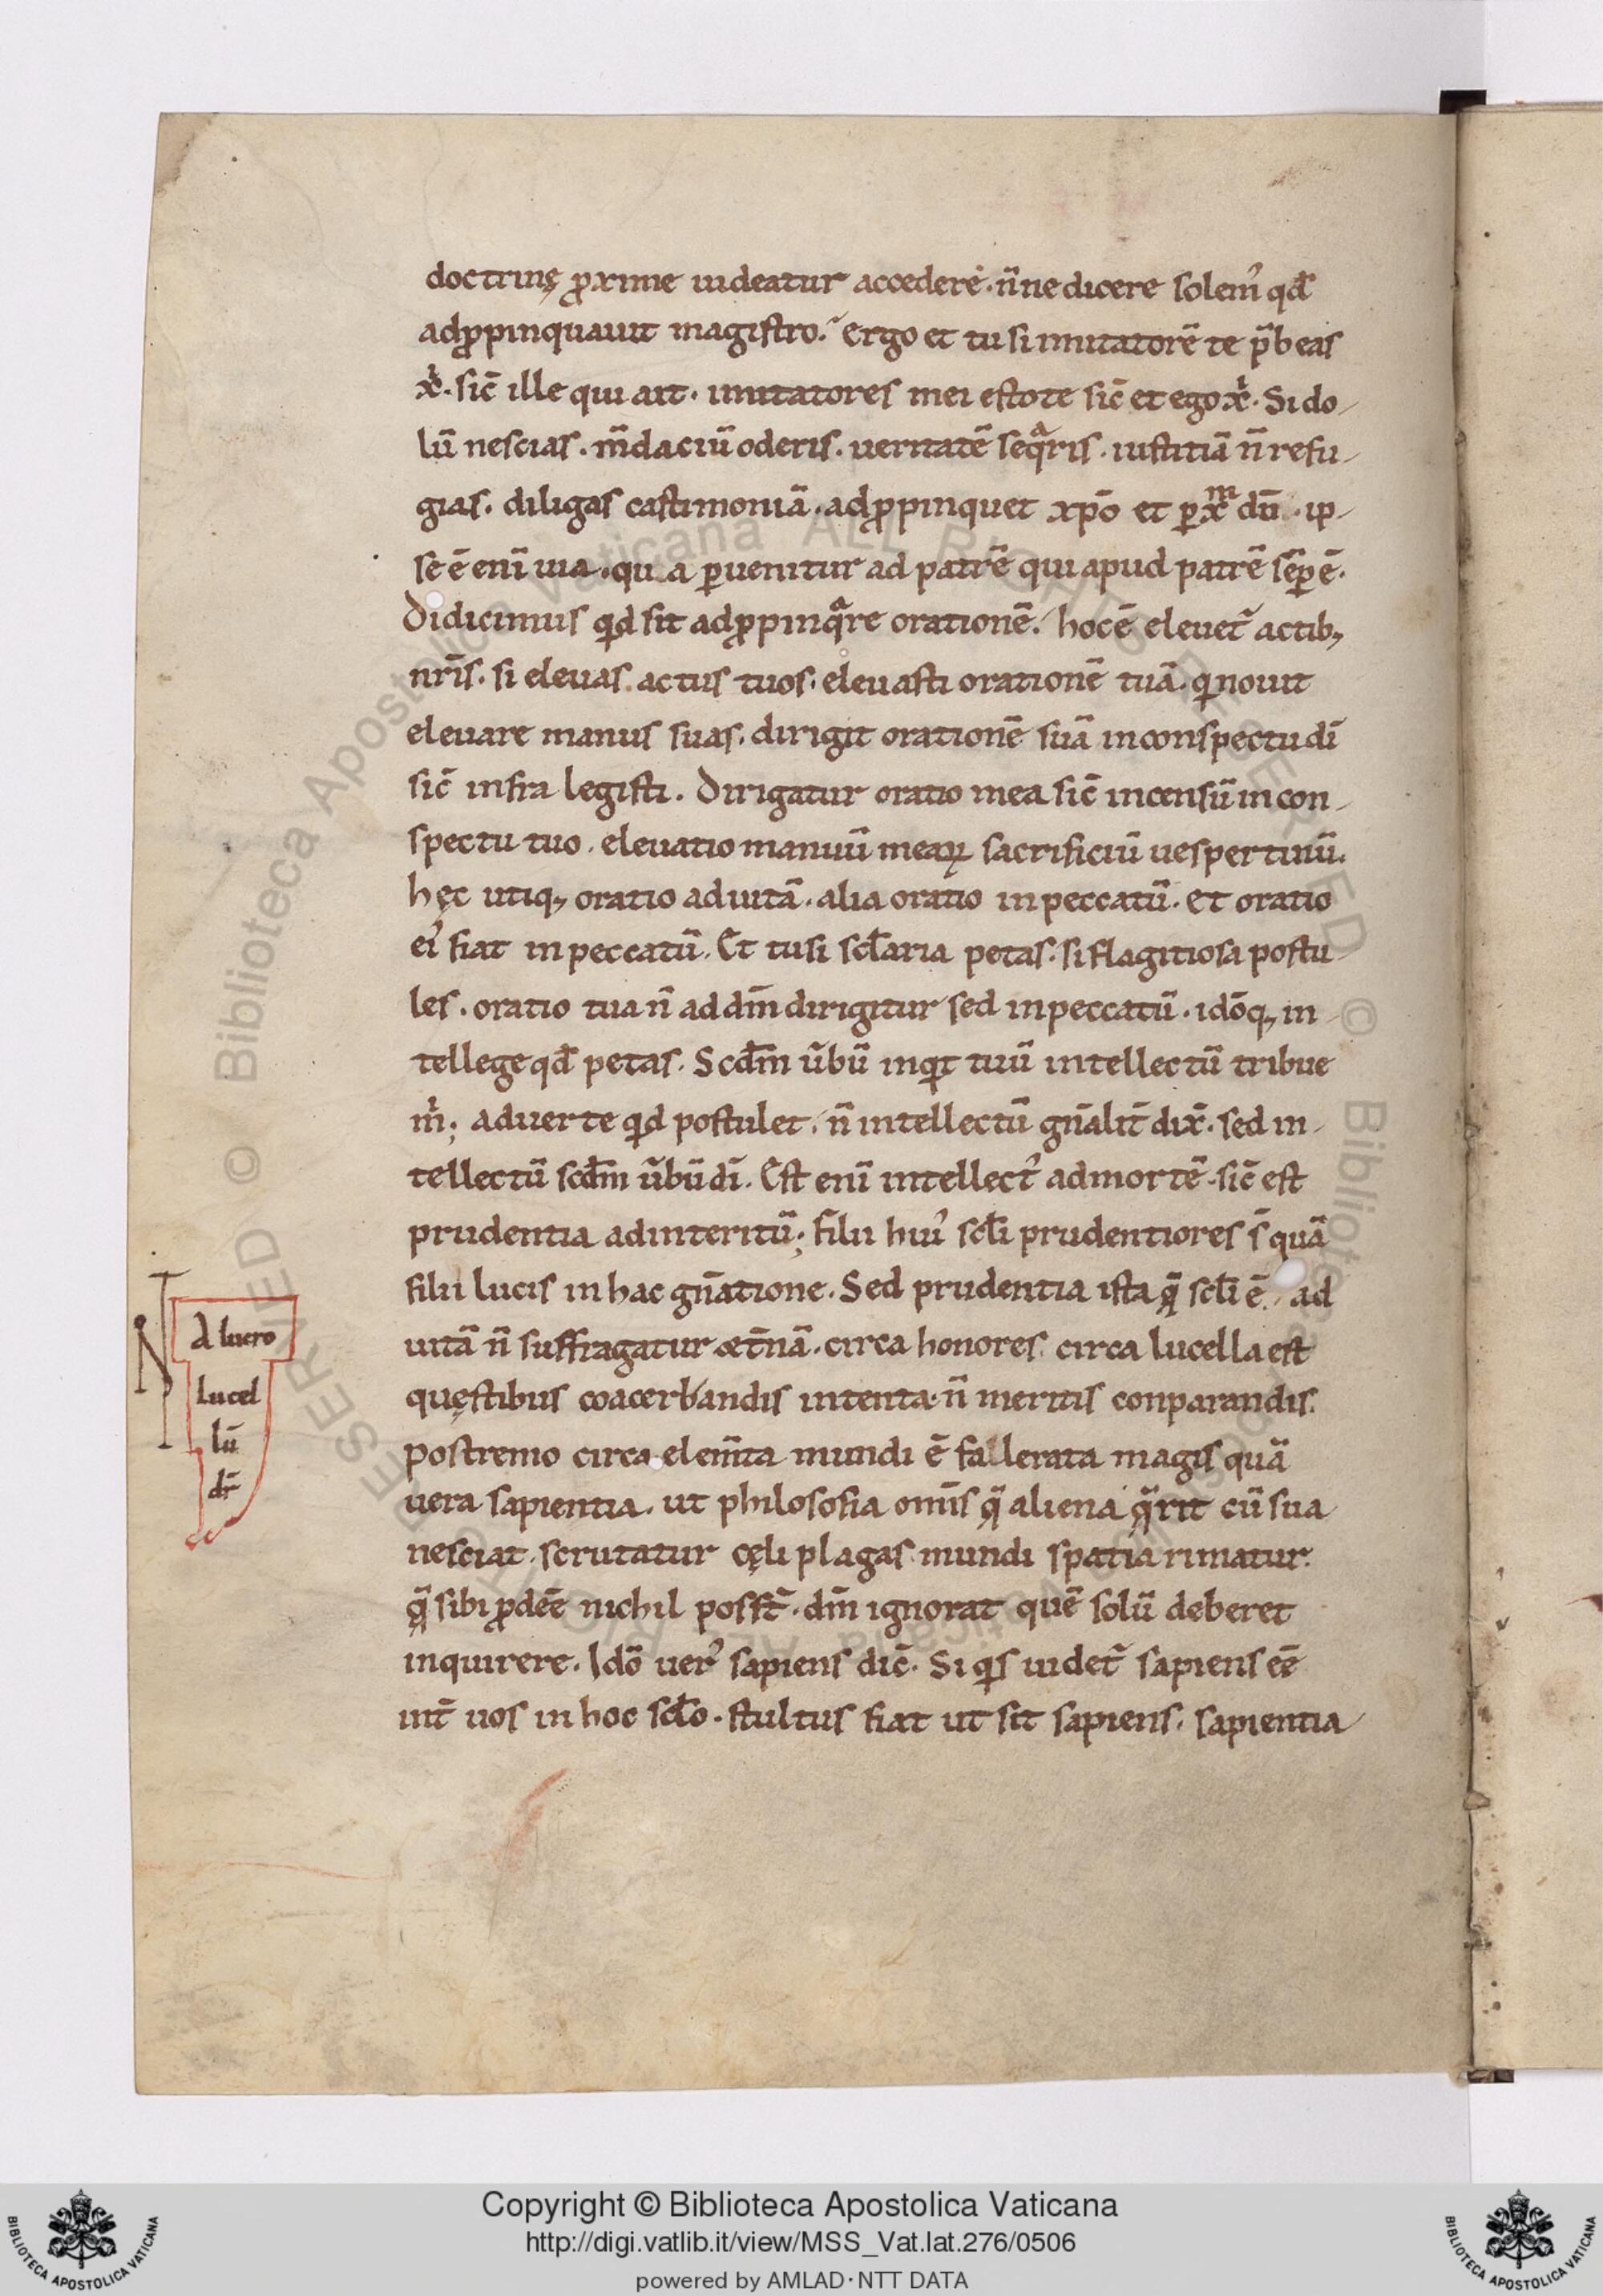 doctrinę ꝓxime uideatur accedere · n̄ne dicere solem᾽ qd̄
adꝓpinquauit magistro. Ergo et tu si imitatorē te p̄beas
xp̄i · sic̄ ille qui ait · imitatores mei estote sic̄ et ego xp̄i · Si do-
lū nescias · m̄daciū oderis · ueritatē seqͣris · iustitiā n̄ refu-
gias · diligas castimoniā · adꝓpinquet xpō et ꝑ xm̄ dn̄ · ip-
se ē eni᷑ uia · qua ꝑuenitur ad patrē qui apud patrē sēꝑ ē ·
Didicimus qid sit adꝓpinqͣre orationē. hoc ē eleuet᷑ actib;
nr̄is · si eleuas actus tuos · eleuasti orationē tuā · qi nouit
eleuare manus suas · dirigit orationē suā in conspectu dī
sic̄ infra legisti · Dirigatur oratio mea sic̄ incensū in con-
spectu tuo · eleuatio manuū meaꝝ sacrificiū uespertinū.
hęc utiq; oratio ad uitā · alia oratio in peccatū · et oratio
ei᾽ fiat in peccatū. Et tu si scl̄aria petas · si flagitiosa postu-
les · oratio tua n̄ ad dm̄ dirigitur sed in peccatū · idōq; in-
tellege qd̄ petas · Scdm̄ ūbū inqit tuū intellectū tribue
mi; aduerte qid postulet · n̄ intellectū gn̄alit̄ dix̄ · sed in-
tellectū scdm̄ ūbū dī. Est eni᷑ intellect᾽ ad mortē · sic̄ est
prudentia ad interitū; Filii hui᾽ scl̄i prudentiores s̄ quā
filii lucis in hac gn̄atione. Sed prudentia ista q̄ scl̄i ē · ad
uitā n̄ suffragatur æt̄nā · circa honores circa lucella est
quęstibus coacerbandis intenta · n̄ meritis conparandis.
postremo circa elem̄ta mundi ē fallerata magis quā
uera sapientia · ut philosofia om̄is q̄ aliena q̄rit cū sua
nesciat · scrutatur cęli plagas mundi spatia rimatur
q̄ sibi ꝓdeē nichil posst̄ · dm̄ ignorat quē solū deberet
inquirere. Idō uer᾽ sapiens dic̄ · Si qis uidet᷑ sapiens eē
int̄ uos in hoc scl̄o · stultus fiat ut sit sapiens · sapientia
A lucro
lucel
lū
dr̄
Copyright © Biblioteca Apostolica Vaticana
http://digi.vatlib.it/view/MSS_Vat.lat.276/0506
powered by AMLAD·NTT DATA
BIBLIOTECA APOSTOLICA VATICANA
BIBLIOTECA APOSTOLICA VATICANA